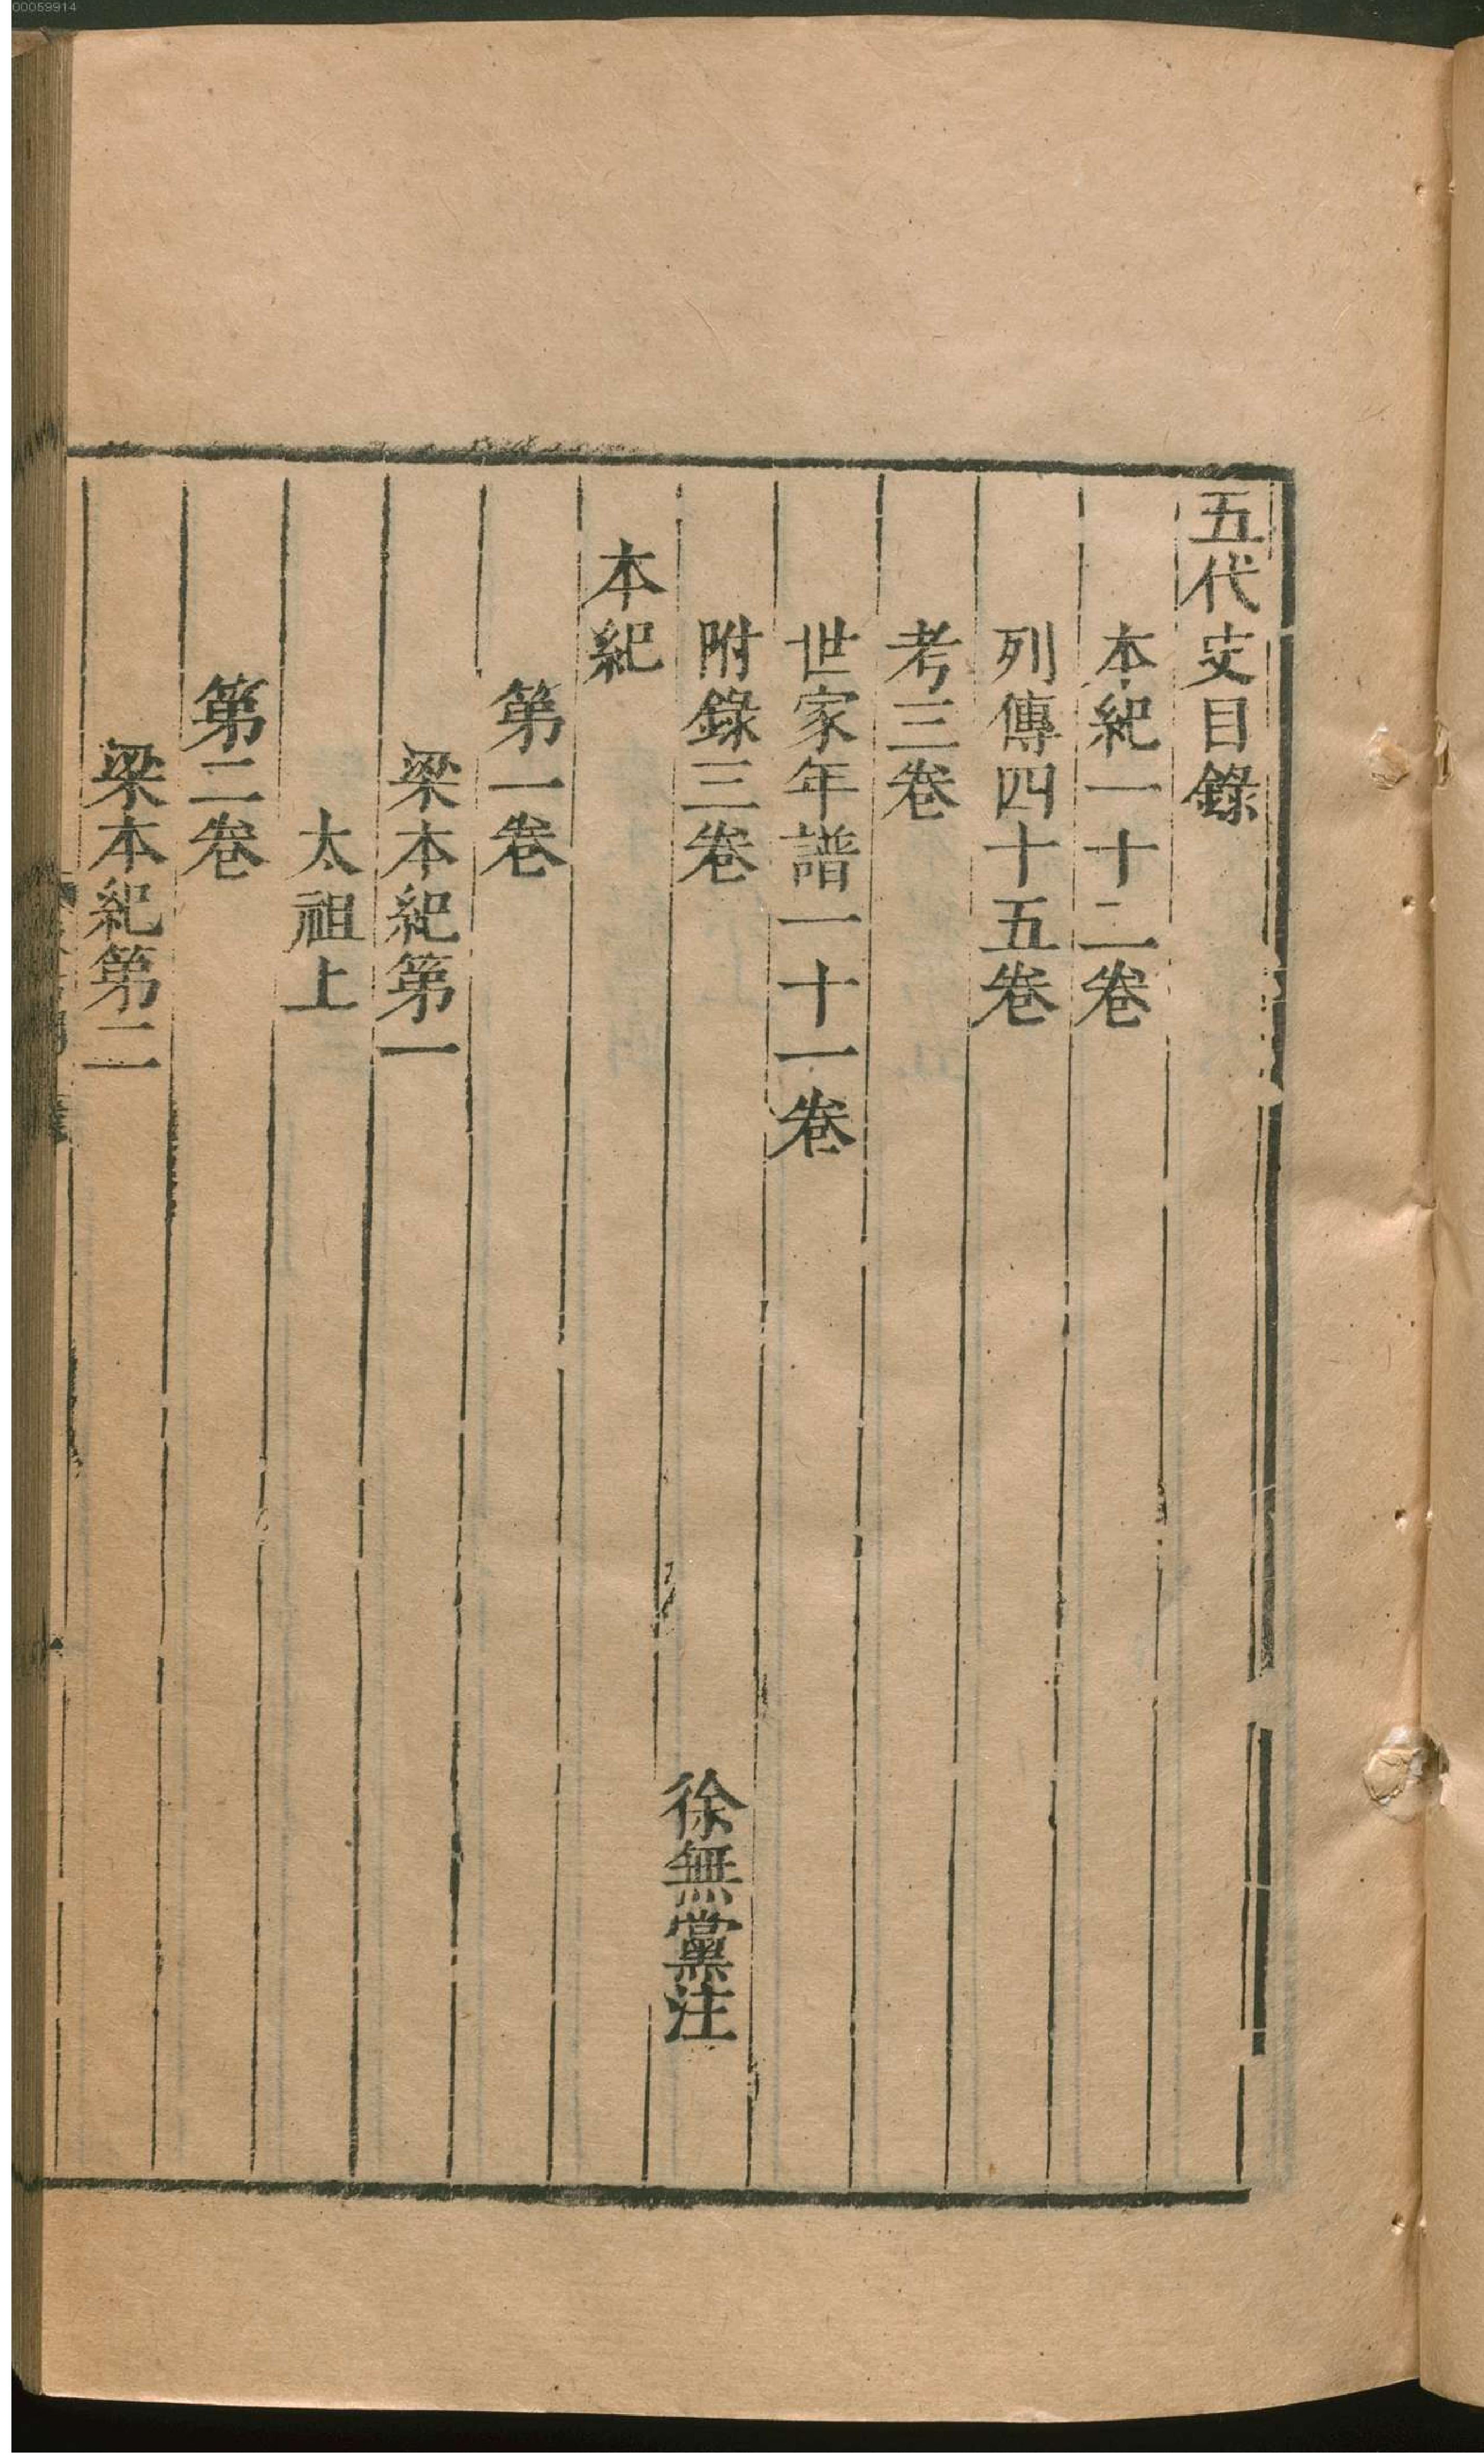 00059914
五代史目錄
本紀一十二卷
列傳四十五卷
考三卷
世家年譜一十一卷
附錄三卷
徐無黨注
本紀
第一卷
梁本紀第一
太祖上
第二卷
梁本紀第二